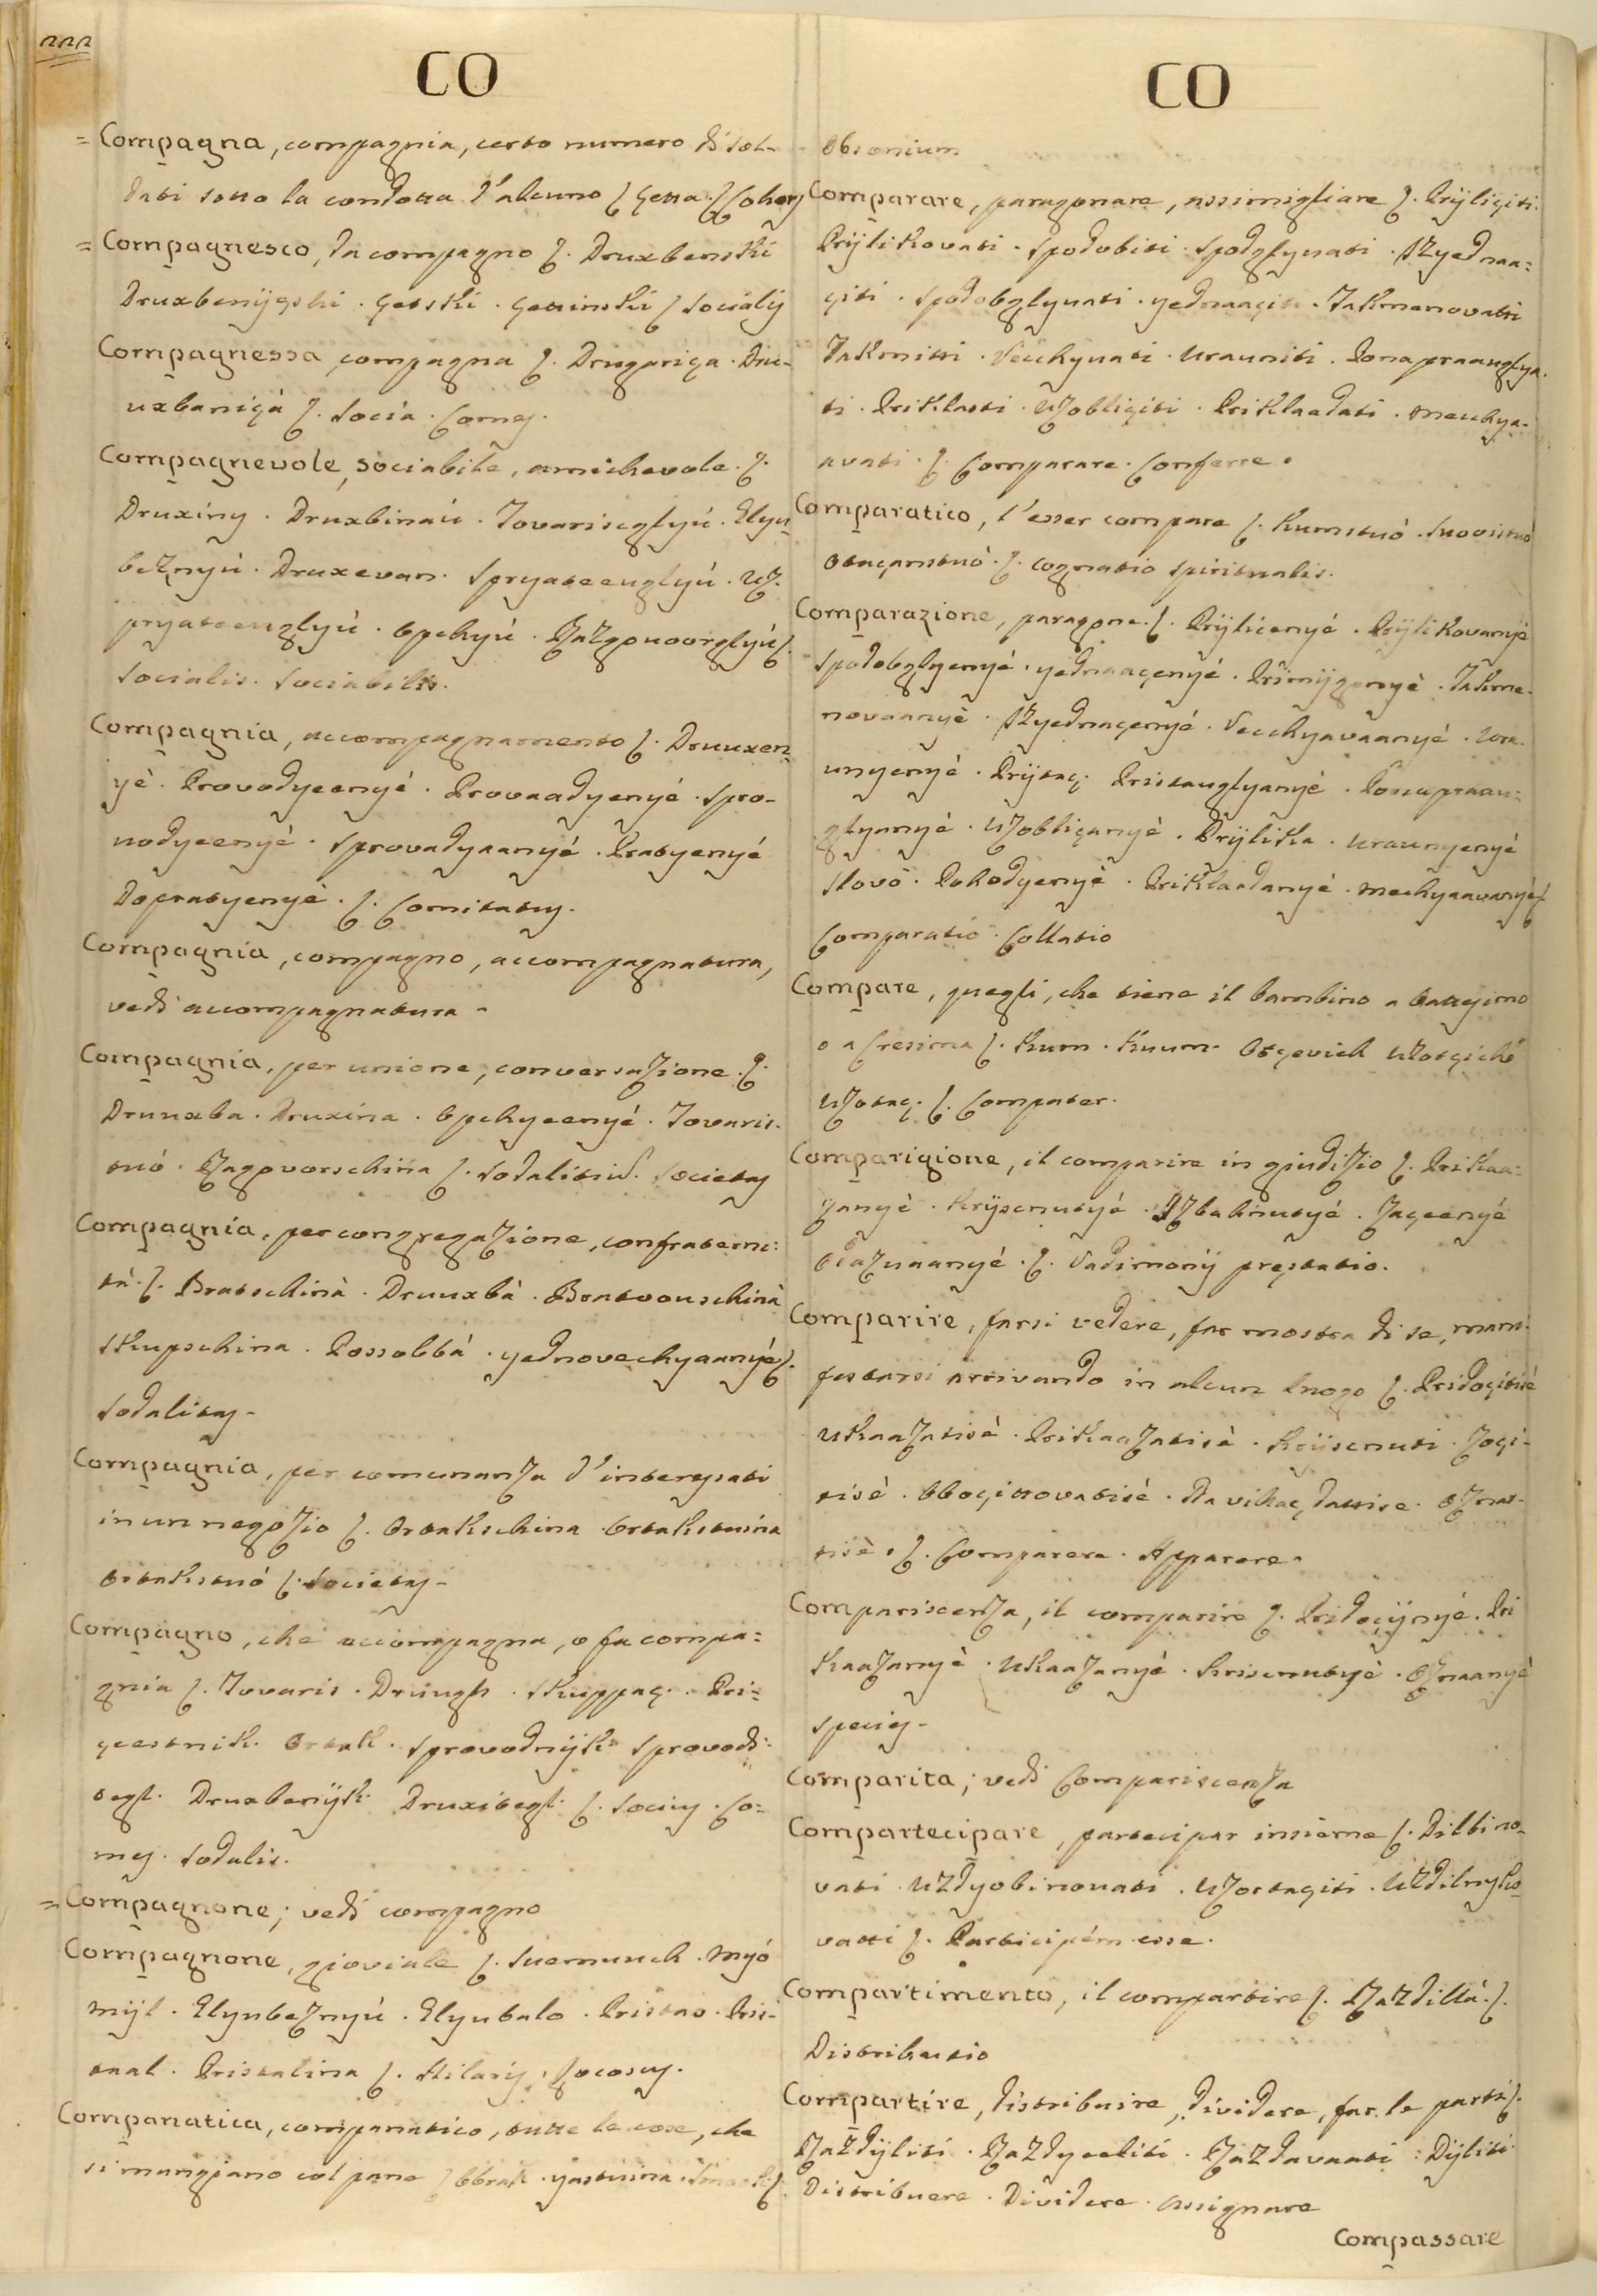 222
CO
= Compagna, compagnia, certo numero di sol-
dati sotto la condotta d'alcuno ʃ Çetta ʃ Cohors
= Compagnesco, da compagno ʃ. Druxbenski
Druxbenÿçski . çetski . çettinski ʃ Socialis
Compagnessa, compagna ʃ. Drugariça . Dru-
uxbaniçà ʃ. Socia . Comes.
Compagnevole, sociabile, amichevole . ʃ.
Druxiny . Druxbinaú . Tovariscglyú . Glyu
beznyú . Druxevan . Spryateeuglyú . uz.
pryateeuglyú . Opchyú . Razgouoorglyú ʃ.
Socialis . Sociabilis.
Compagnia, accompagnamento ʃ. Druuxen
yé . Provodyeenyé . Provaadyenyé . Spro-
uodyeenyé . Sprovadyaanyé . Pratyenyé
Dopratyenyé . ʃ. Comitatus.
Compagnia, compagno, accompagnatura,
vedi accompagnatura -
Compagnia, per unione, conversazione . ʃ.
Druuxba . Druxina . Opchyeenyé . Tovaris-
tuó . Razgovorschina ʃ. Sodalitiu . Societas
Compagnia, per congregazione, confraterni:
tà . ʃ. Bratschinà . Druuxbà . Bratvouschinà
Skupschina . Possobbà . yednovechyaanyé ʃ.
Sodalitas -
Compagnia, per comunanza d'interessati
in un negozio ʃ. Ortakschina . Ortakstuina
Ortakstuó ʃ. Societas -
Compagno, che accompagna, o fa compa:
gnia ʃ. Tovaris . Druugh . Skuppaç . Pri:
çeestnik . Ortak . Sprovodnÿk . Sprovodi:
tegl . Druxbenÿk . Druxitegl . ʃ. Socius . Co:
mes . Sodalis.
= Compagnone; vedi compagno
Compagnone, gioviale ʃ. Suemuuch . Myó
mÿl . Glyubeznyú . Glyubalo . Pristao . Pris-
taal . Pristalina ʃ. Hilaris, Jocosus.
Companatica, companatico, tutte le cose, che
si mangiano col pane ʃ Obrak . yastuina . ʃ.
CO
Obsonium
Comparare, paragonare, assimigliare ʃ. Prÿliçiti.
Prÿlikovati . Spodobiti . Spodglyuati . Szyednaa:
çiti . Spodobglyuati . yednaaçiti . Takmenovatti
Takmitti . Vecchyuati . Urauniti . Ponapraauglya-
ti . Priklasti . Uzobliçiti . Priklaadati . Mecchya-
avati . ʃ. Comparare . Conferre .
Comparatico, l'esser compare ʃ. Kumstuò . Suoistuò
Otaçanstuò . ʃ. cognatio Spiritualis.
Comparazione, paragone . ʃ. Prÿliçenyé . Prÿlikovanyé
Spodobglyenyé . yednaaçenyé . Primÿgenyé . Takme-
novaanyé . Szyednaçenyé . Vecchyavaanyé . Ura-
unyenyé . Prÿtaç . Pristauglyanyé . Ponapraau:
glyanyé . Uzobliçanyé . Prÿlika . Uraunyenyé
Slovò . Pohodyenyé . Priklaadanyé . Mechyaavanyé ʃ
Comparatio . Collatio
Compare, quegli, che tiene il bambino a battesimo
o a Cresima ʃ. Kum . Kuum . Otçevich Uzotçich
Uzotaç . ʃ. Compater.
Comparigione, il comparire in giudizio ʃ. Prikaa:
zanyé . Krÿsenutyé . Izbahnutyé . Jaçeenyé
Odazuaanyé . ʃ. Vadimonÿ prestatio.
Comparire, farsi vedere, far mostra di se, mani-
festarsi arrivando in alcun luogo ʃ. Pridoçitisé
Ukaazatisé . Prikaazatisé . Krÿsenuti . Joçi-
tisé . Oboçittovatisé . Na vihaç dattise . Oznat-
tisé . ʃ. Comparere . Apparere .
Compariscenza, il comparire ʃ. Pridoçÿnyé . Pri
kaazanyé . Ukaazanyé . Krisenutyé . Oznaanyé
Species -
Comparita; vedi Compariscenza
Compartecipare, partecipar insieme ʃ. Dilbino-
vati . Uzdyobinouati . Uzortaçiti . Uzdilnyko-
vatti ʃ. Participém esse .
Compartimento, il compartire ʃ. Razdillá . ʃ.
Distributio
Compartire, distribuire, dividere, far le parti ʃ.
Razdÿliti . Razdyeeliti . Razdavaati : Dÿliti
Distribuere . Dividere . Assignare
Compassare